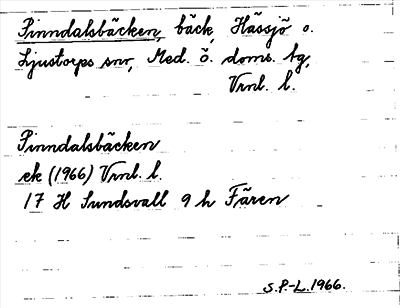 Pinndalsbäcken, bäck, Hässjö o.
Ljustorps snr, Med. ö. doms. tg,
Vrnl. l.
Pinndalsbäcken
ek (1966) Vrnl. l.
17 H Sundsvall 9 h Fären
S.P-L. 1966.